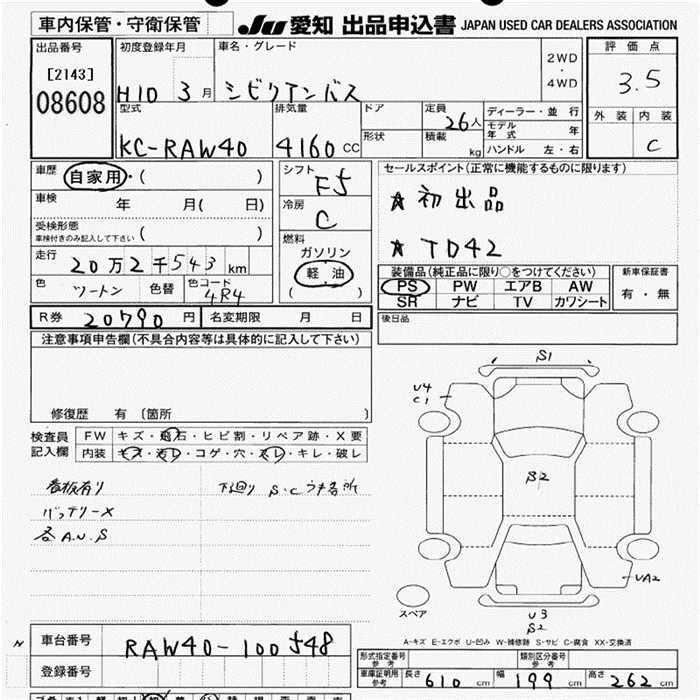 車内保管・守衛保管 JU 愛知 出品申込書 JAPAN USED CAR DEALERS ASSOCIATION
出品番号 初度登録年月 車名・グレード 2WD ・ 4WD 評価点
[2143] 08608 H10 3月 シビリアンバス 3.5
型式 排気量 ドア 定員 26人 ディーラー・並行 外装 内装
KC-RAW40 4160 CC 形状 積載 kg モデル年式 年 C
ハンドル 左・右
車歴 自家用・( ) シフト F5 セールスポイント(正常に機能するものに限ります)
車検 年 月( 日) 冷房 C ★初出品
受検形態 車検付きのみ記入して下さい ( ) 燃料 ガソリン ★TD42
走行 20万2千543km 軽油 装備品(純正品に限り○をつけてください) 新車保証書
色 ツートン 色替 色コード 4R4 ( ) PS PW エアB AW 有・無
SR ナビ TV カワシート
R券 20790円 名変期限 月 日 後日品
注意事項申告欄(不具合内容等は具体的に記入して下さい)
S1
U4
C1
修復歴 有 〔箇所 〕
検査員記入欄 FW キズ・飛石・ヒビ割・リペア跡・X要
内装 キズ・汚レ・コゲ・穴・スレ・キレ・破レ
S2
看板有り 下廻り S・C
バッテリーX
各A.U.S
UA2
スペア
U3
S2
A-キズ E-エクボ U-凹み W-補修跡 S-サビ C-腐食 XX-交換済
車台番号 RAW40-100548
登録番号 形式指定番号 参考 類別区分番号 参考
車庫証明用 参考 長さ 610 cm 幅 199 cm 高さ 262 cm